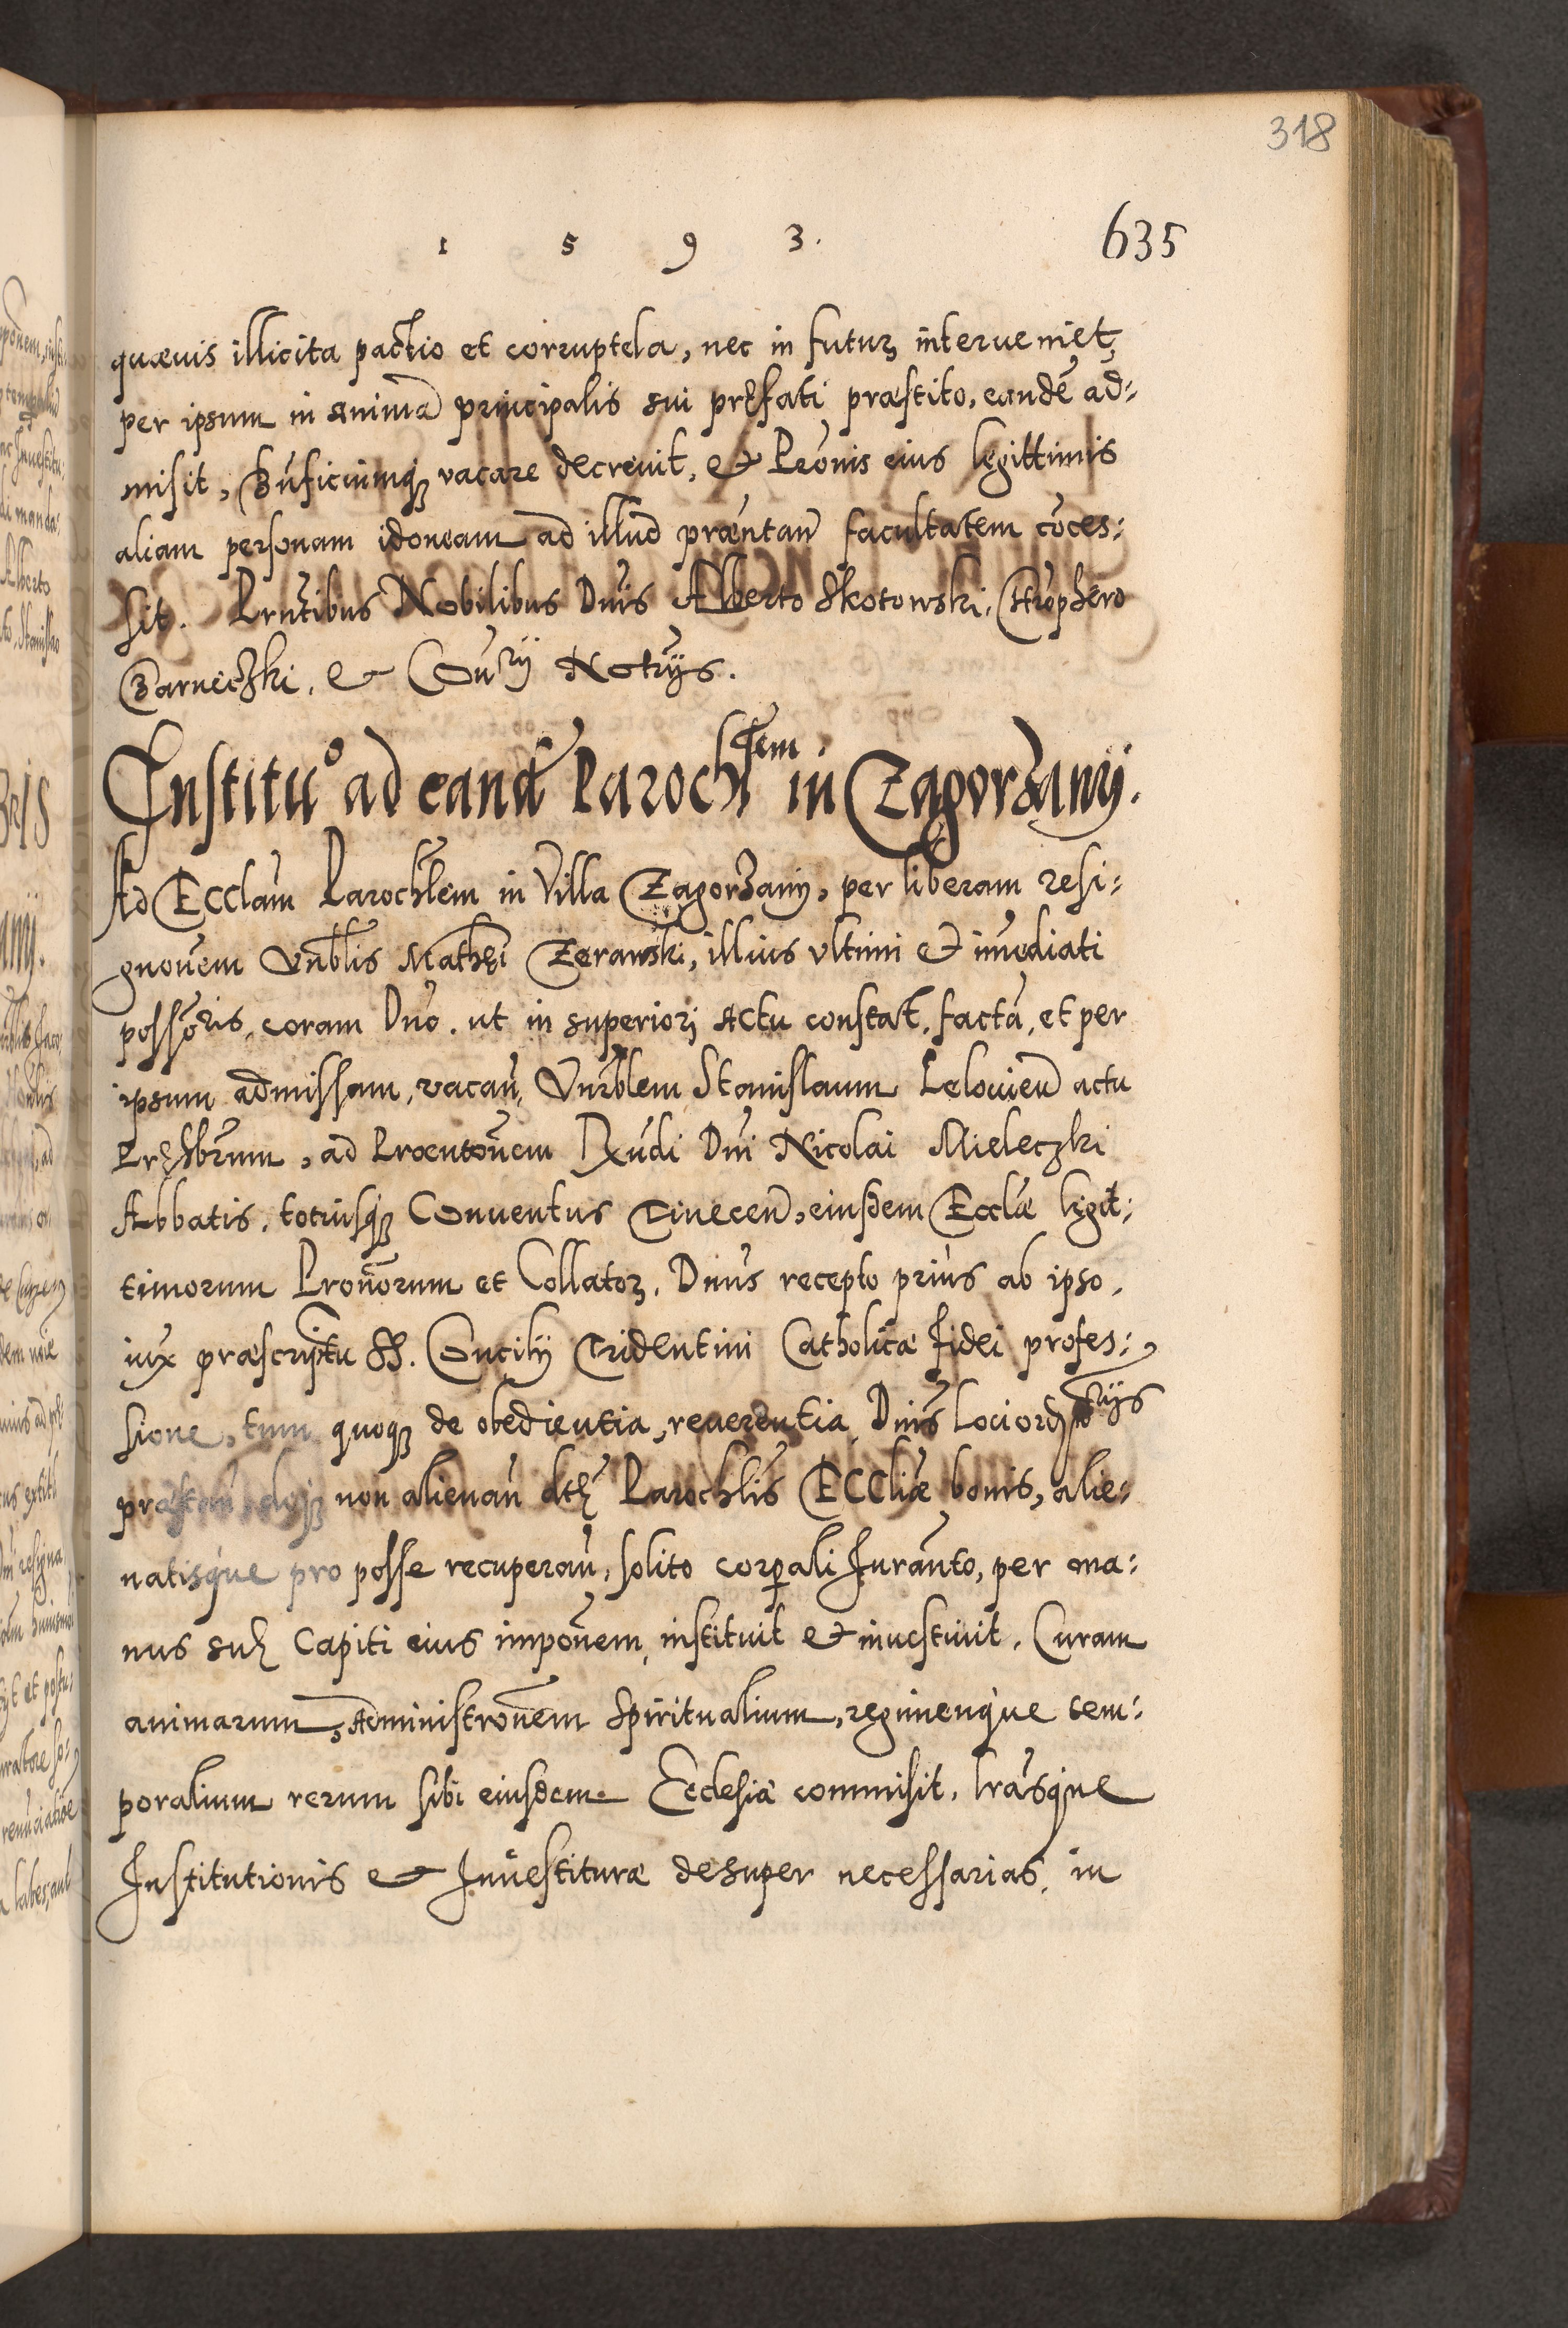 318
1 5 9 3.
635
quævis illicita pactio et corruptela, nec in futuꝝ interueniet,
per ipsum in animā principalis sui præfati præstito, eandē ad:
misit, Bnficiumqꝫ vacare decreuit, et Prōnis eius legittimis
aliam personam idoneam ad illud præntan̄ facultatem cōces:
sit. Prntibus Nobilibus Dnis Alberto Skotowski, Chrophero
Barneczki, et Conrij Notrijs.
Institu° ad eand Parochlem in Zagorzany.
Ad Ecclam Parochlem in Villa Zagorzany, per liberam resi:
gnōnem Vnblis Mathei Zerawski, illius vltimi et imediati
possōris, coram Dno. ut in superiorj actu constat, factā, et per
ipsum admissam, vacan̄, Vnrblem Stanislaum Lelouien̄ actu
Præsbrum, ad Præntōnem Rndi Dni Nicolai Mieleczki
Abbatis, totiusqꝫ Conuentus Tinecen̄, eiusdem Ecclæ legit:
timorum Pronōrum et Collatoꝝ. Dnus recepto prius ab ipso,
iux præscriptū SS. Concilij Tridentini Catholicæ fidei profes:
sione, tum quoqꝫ de obedientia, reuerentia, Dnis loci ordrijs
præstan̄, deqꝫ non alienan̄ dctæ Parochlis Eccliæ bonis, alie:
natisque pro posse recuperan̄, solito corporali Juran̄to, per ma:
nus suæ Capiti eius impōnem, instituit et inuestiuit. Curam
animarum, administrōnem Spiritualium, regimenque tem:
poralium rerum sibi eiusdem Ecclesiæ commisit, lrasque
Institutionis et Inuestituræ desuper necessarias, in